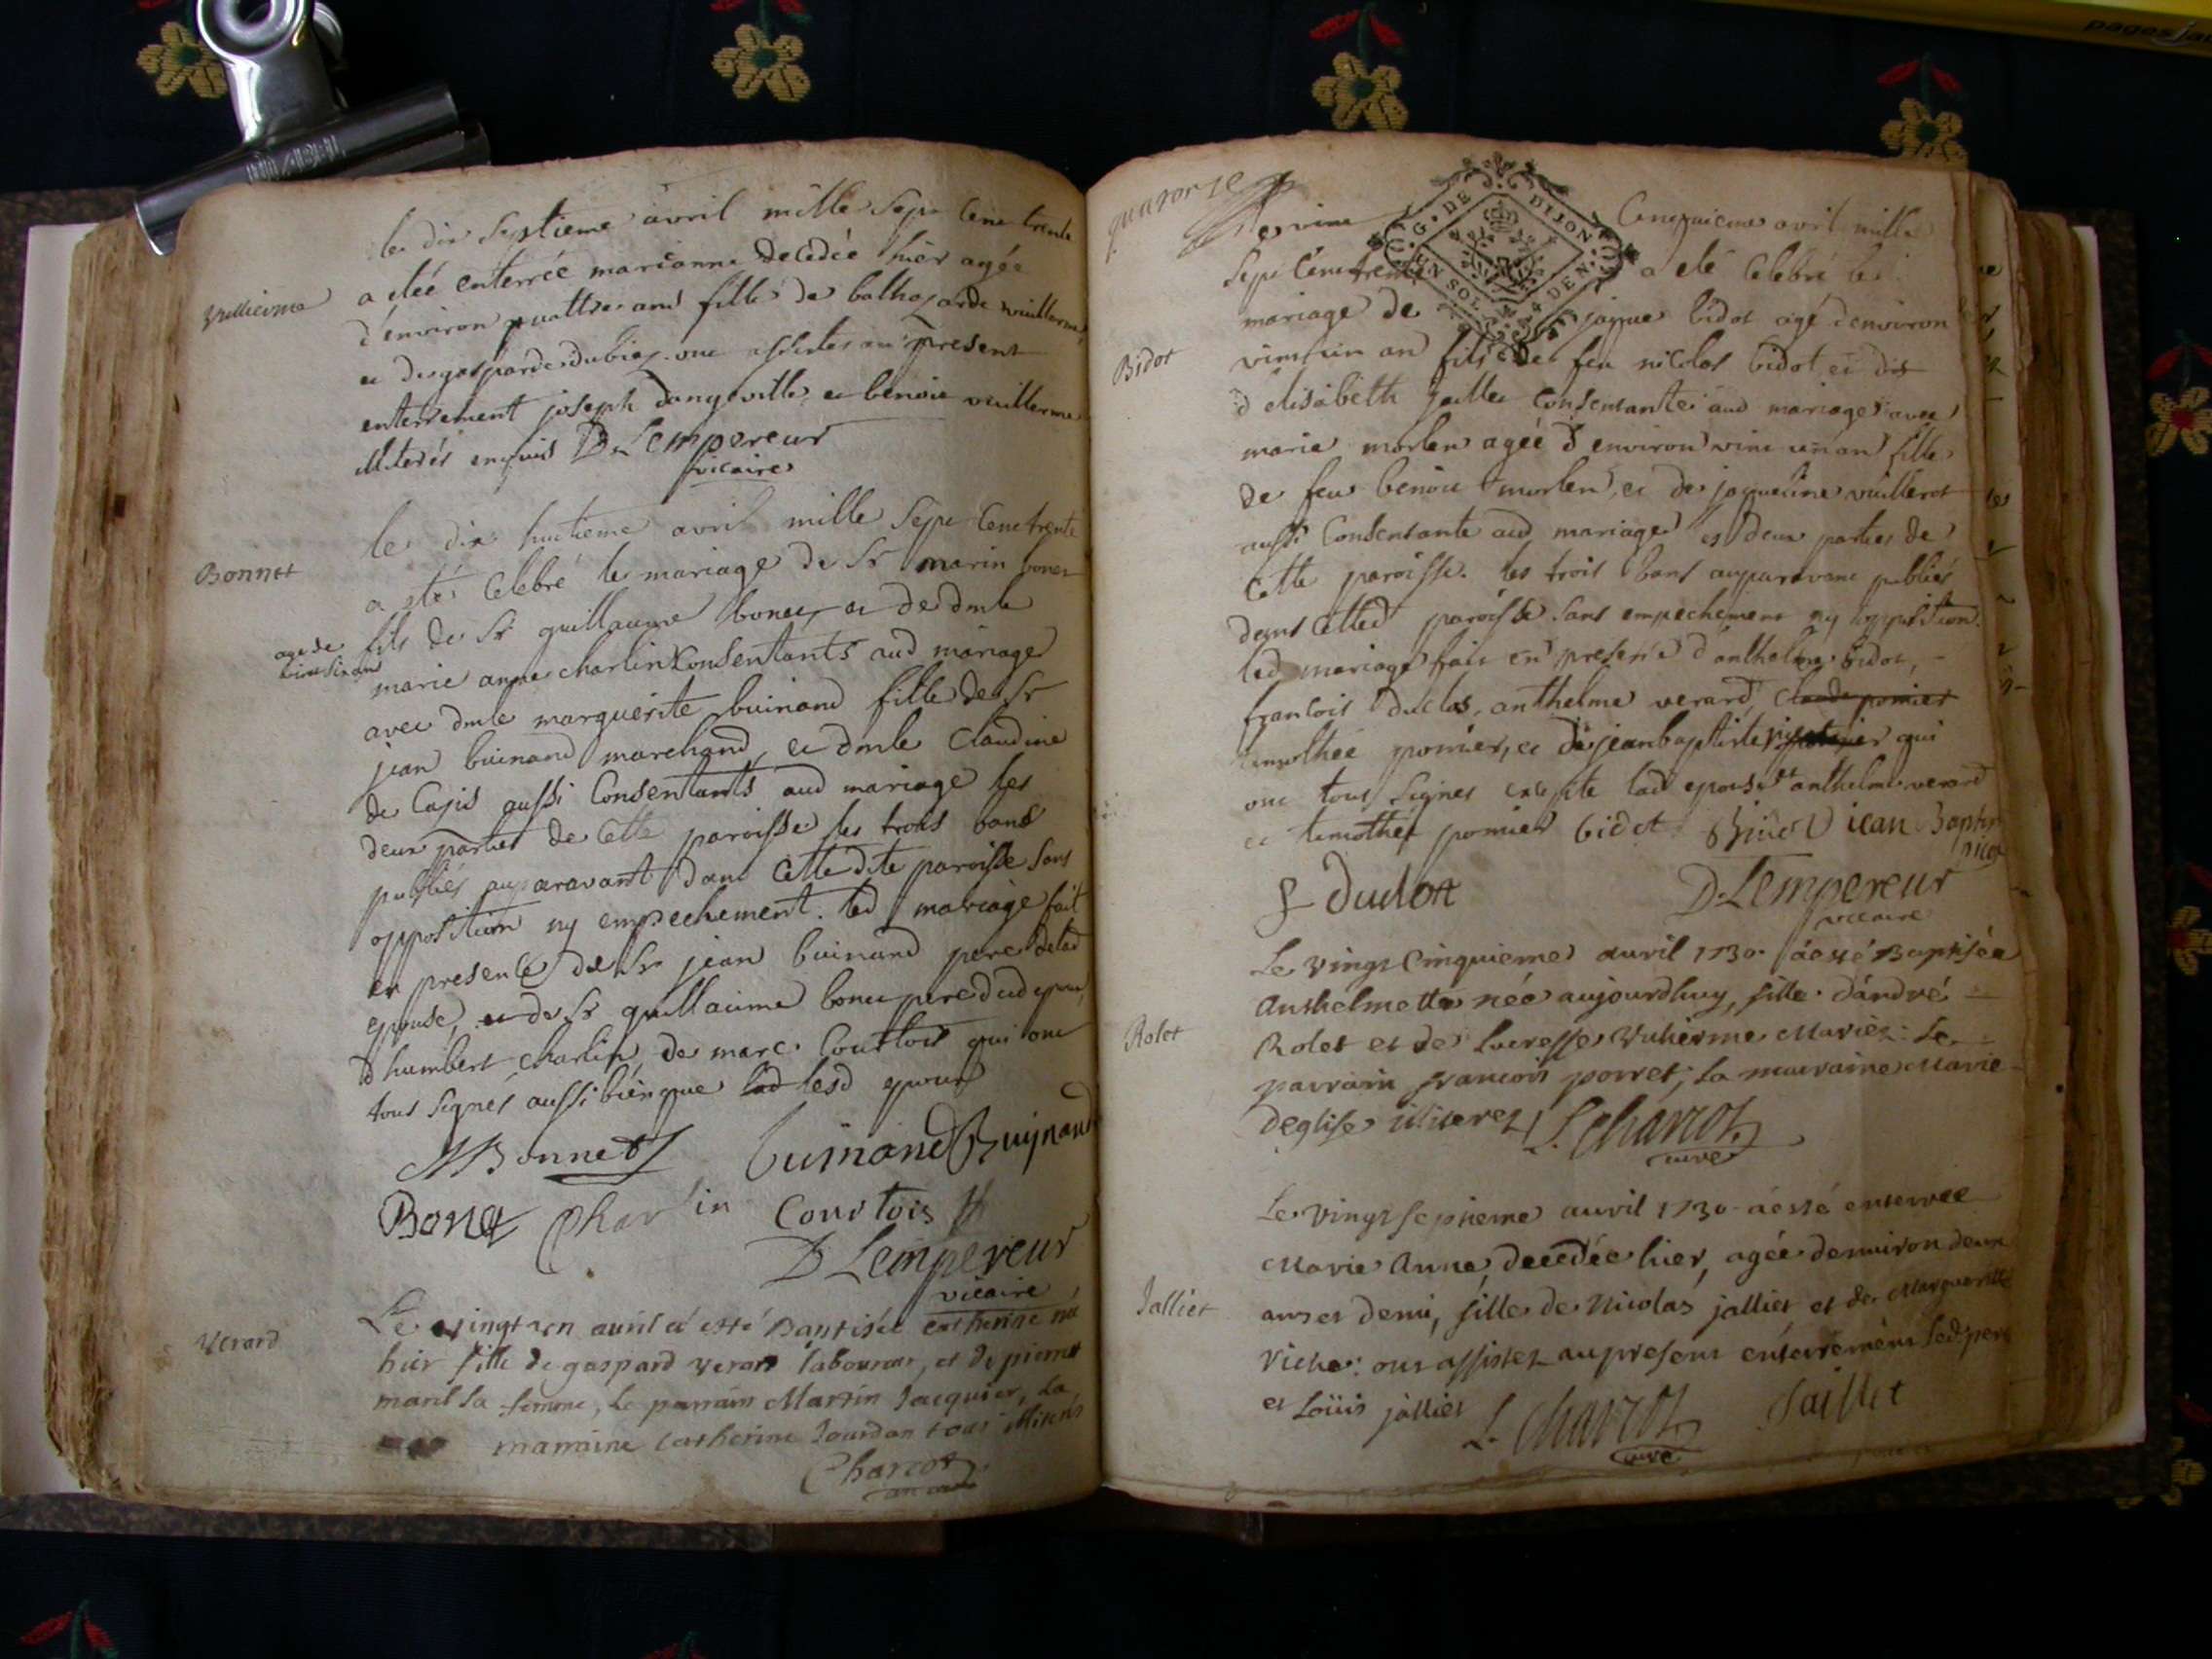 pages jau
le dix septieme avril mille sept cent trente
Vuillierme
a etéé enterrée marianne decedée hier agée
d'environ quattre ans fille de balthazarde vuillerme
et de gasparde dubiez. ont assistés au present
enterrement joseph dangeville et benoit vuillerme
illiterés enquis D Lempereur
vicaire
le dix huitieme avril mille sept cent trente
Bonnet
a eté celebré le mariage de Sr marin bonet
fils de Sr guillaume bonet et de dmle
age de
vint six ans
marie anne charlin consentants aud mariage
avec dmle marguerite buinand fille de Sr
jean buinand marchand, et dmle claudine
de cajis aussi consentants aud mariage les
deux parties de cette paroisse les trois bans
publiés auparavant dans cettedite paroisse sans
opposition ny empechement. led mariage fait
en presence de Sr jean buinand pere de lad
epouse, et de Sr guillaume bonet pere dud epoux,
d humbert charlin, de marc courtois qui ont
tous signés aussi bien que lad lesd epoux
MBonnet Buinand Buynand
Bonet Charlin Courtois
D Lempereur
vicaire
Verard
Le vingt un auril a esté Baptisée catherine née
hier fille de gaspard verard laboureur, et de pierrette
maril sa femme, le parrain Martin Jacquier, la
marraine catherine Jourdan tous illiteres
Charcot
quatorze
Le vint cinquieme avril mille
G. DE DIJON
UN SOL 4 DEN.
sept cent trente a eté celebré le
mariage de jaque bidot agé d'environ
Bidot
vint un an fils de feu nicolas bidot et de
d'elisabeth jaillet consentante aud mariage avec
marie morlen agée d'environ vint un an fille
de feu benoit morlen, et de jaqueline vuillerot
aussi consentante aud mariage es deux parties de
cette paroisse. les trois bans auparavant publiés
dans cetted paroisse sans empechement ny opposition.
led mariage fait en presence d'anthelme bidot,
francois duclos, anthelme verard, claude pomier
timothée pomier, et de jean baptiste qui
ont tous signés excepte lad epouse et anthelme verard
et timothée pomier bidot bidot iean Baptis
f Duclot D. Lempereur
vicaire
Le vingt cinquieme auril 1730. a esté Baptisée
Anthelmette née aujourdhuy, fille d'andré
Rolet
Rolet et de Lucresse Vulierme Mariez: Le
parrain francois porret; la marraine Marie
deglise illiterez L. Charcot
curé
Le vingt septieme auril 1730 a esté enterrée
Marie Anne, decedée hier, agée d'enuiron deux
Jalliet
ans et demi, fille de Nicolas jalliet et de Marguerite
Viche: ont assistez au present enterrement led pere
et Loüis jalliet L. Charcot Jaillet
curé